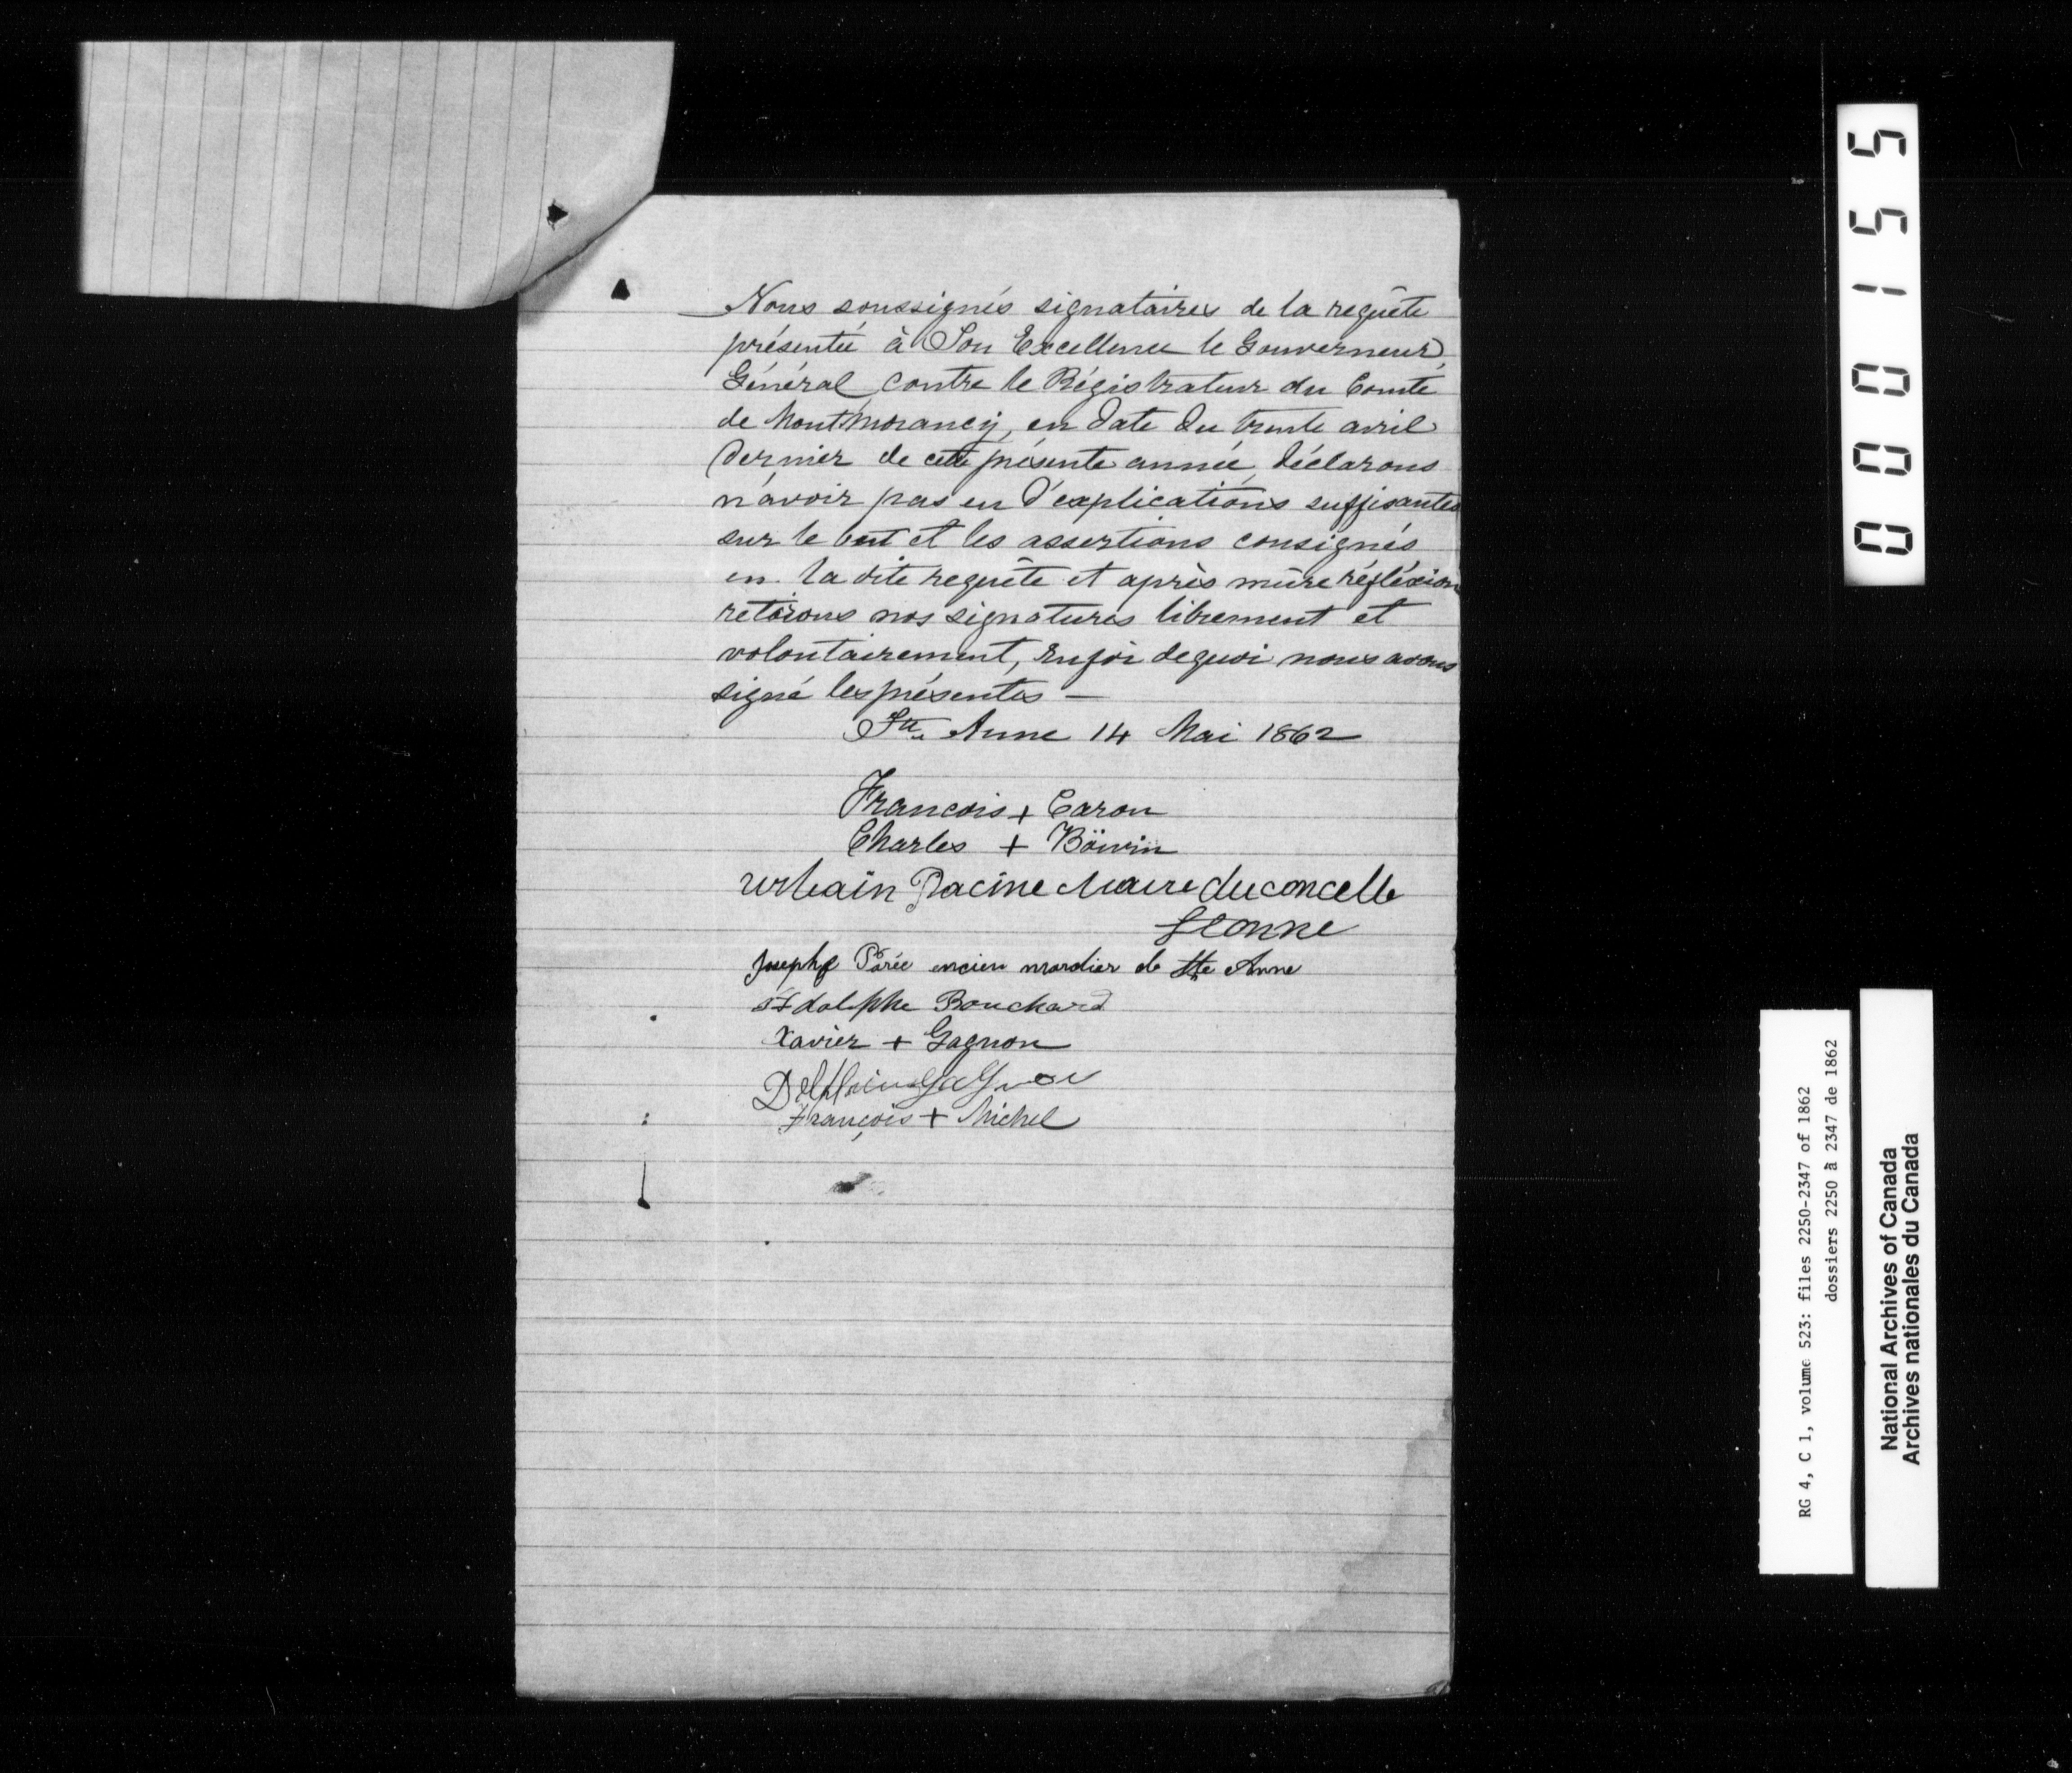 Nous soussignés signataires de la requête
présentée à Son Excellence le Gouverneur
Général contre le Régistrateur du Comté
de Montmorancy, en date du trente avril
dernier de cette présente année, déclarons
n'avoir pas eu d'explications suffisantes
sur le but et les assertions consignés
en la dite requête et après mûre réfléxion
retirons nos signatures librement et
volontairement, en foi de quoi nous avons
signé les présentes —
Ste Anne 14 Mai 1862
Francois + Caron
Charles + Boivin
urbain Racine Maire du concelle
Joseph Paré encien mardier de Ste Anne
Adolphe Bouchard
Xavier + Gagnon
Delphin Gagnon
François + Michel
000155
RG 4, C 1, volume 523: files 2250-2347 of 1862
dossiers 2250 à 2347 de 1862
National Archives of Canada
Archives nationales du Canada